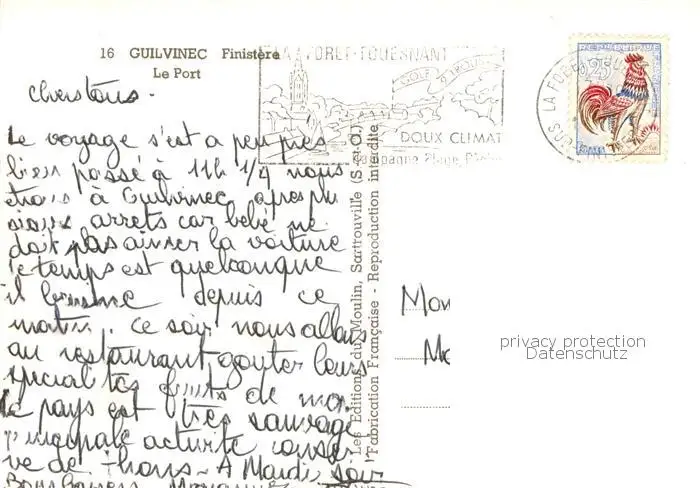 16 GUILVINEC Finistère
Le Port
LA FORET-FOUESNANT
DOUX CLIMAT
Campagne Plage Pêche
25
chers tous.
Le voyage s'est a peu près
bien passé à 11h 1/4 nous
étions à Guilvinec apres plu
sieurs arrets car bébé ne
doit pas aimer la voiture
le temps est quelconque
il bruine depuis ce
matin. ce soir nous allons
au restaurant gouter leurs
specialités fruits de mer
Le pays est très sauvage
principale activité conser
ve de thons - A Mardi soir
Bons baisers
Les Editions du Moulin, Sartrouville (S.-et-O.)
Fabrication Française - Reproduction interdite
privacy protection
Datenschutz